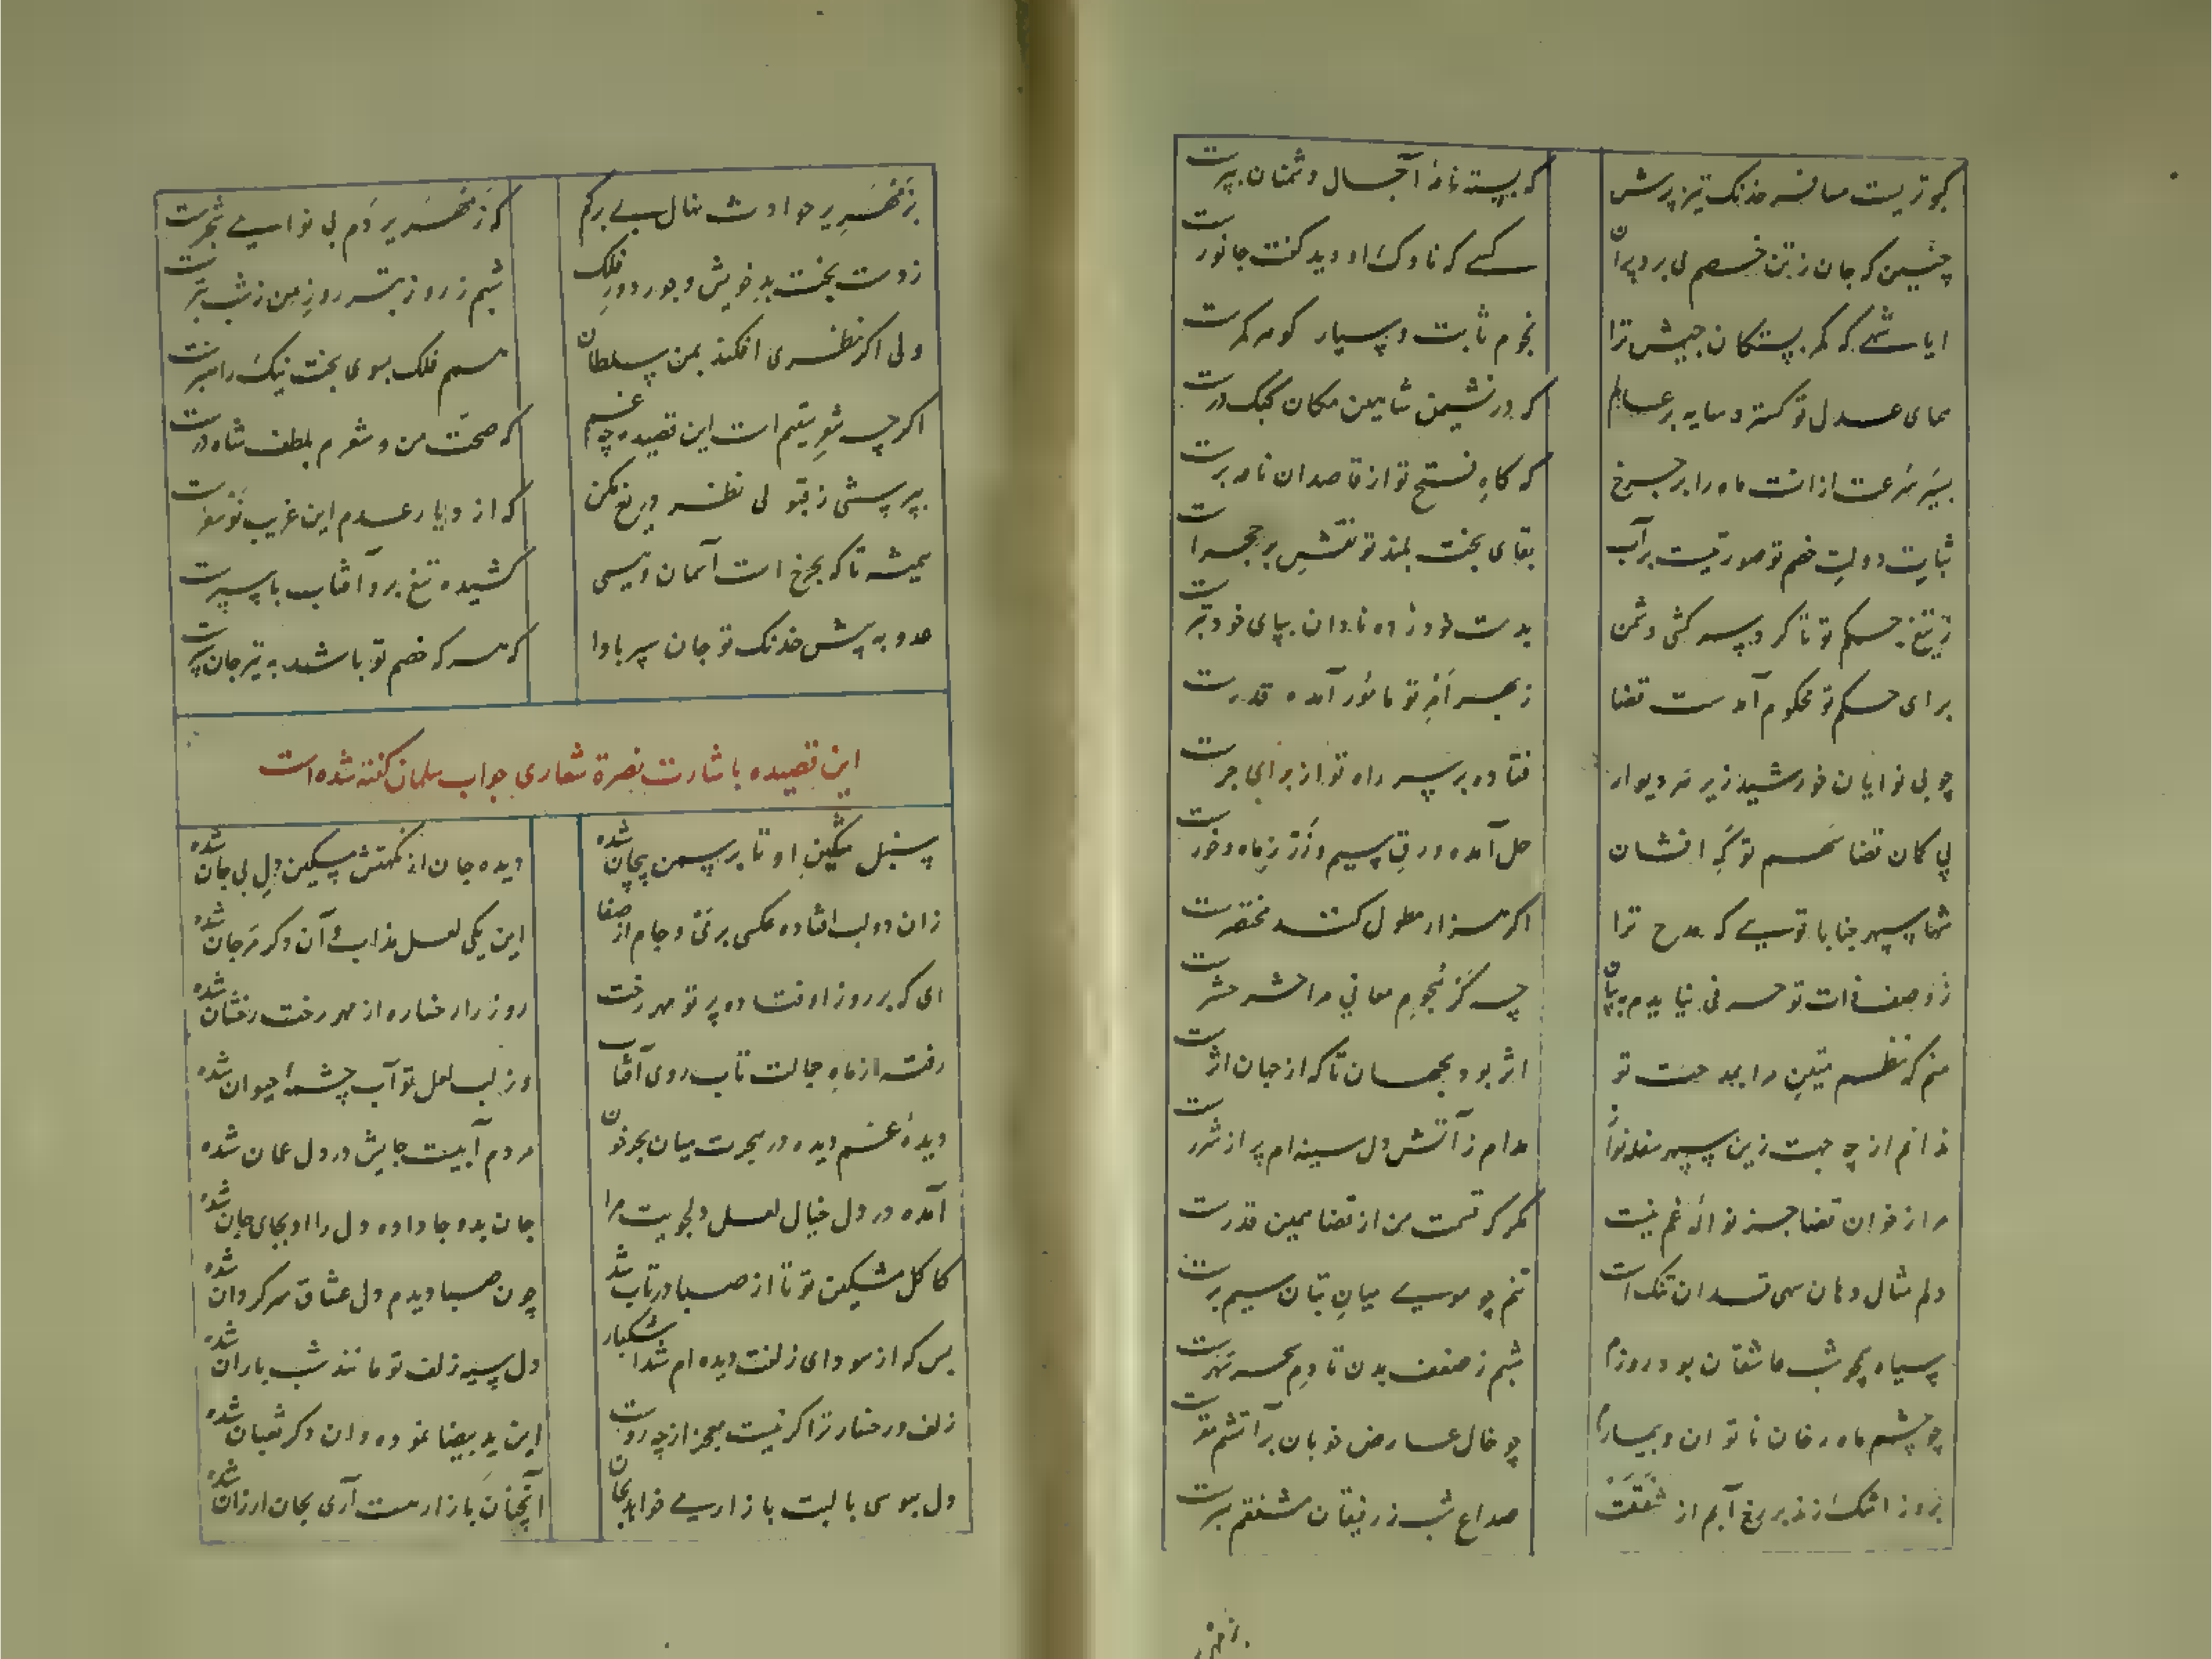 کبوتریست مسافر خدنک تیز پرش که بسته نامهٔ آجال دشمنان بپرست
چنین که جان ز تن خصم می برد پران کسی که ناوک او دید گفت جانورست
ایا شهی که کمر بستگان جیش ترا نجوم ثابت و سیار گوهر کمرست
همای عدل تو گسترد سایه بر عالم که در نشیمن شاهین مکان کبک درست
بسیر سرعت از انست ماه را بر چرخ که گاه فتح تو از قاصدان نامه برست
ثبات دولت خصم تو صورتیست بر آب بقای بخت بلند تو نقش بر حجرست
ز تیغ حکم تو تا کرد سرکشی دشمن بدست خود زده نادان بپای خود تبرست
برای حکم تو محکوم آمدست قضا ز بهر امر تو مأمور آمده قدرست
چو بی نوایان خورشید زیر هر دیوار فتاده بر سر راه تو از برای جرست
پی کمان قضا سهم تو گه افشان حل آمده ورق سیم و زر ز ماه و خورست
شها سپهر جنابا توئی که مدح ترا اگر هزار مطول کنند مختصرست
ز وصف ذات تو حرفی نیایدم به بیان چه گر نجوم معانی مرا حشر حشرست
منم که نظم متین مرا بمدحت تو اثر بود بجهان تا که از جهان اثرست
ندانم از چه جهت زین سپهر سفله نواز مدام ز آتش دل سینه ام پر از شررست
مرا ز خوان قضا جز نوالهٔ غم نیست مگر که قسمت من از قضا همین قدرست
دلم مثال دهان سهی قدان تنک است تنم چو موی میان بتان سیم برست
سیاه همچو شب عاشقان بود روزم شبم ز ضعف بدن تا دم سحر سهرست
چو چشم ماه رخان ناتوان و بیمارم چو خال عارض خوبان بر آتشم مقرست
بروز اشک زند بر رخ آبم از شفقت صداع شب ز رفیقان مشفقم بسرست
ز مهر
ز زمهریر حوادث نهال بی برگم که زمهریر دم بی نوایی شجرست
ز دست بخت بد خویش و جور دور فلک شبم ز روز بتر روز من ز شب بترست
ولی اگر نظری افکند بمن سلطان سهم فلک بسوی بخت نیک راهبرست
اگرچه شعر یتیم است این قصیده چه غم که صحت من و شعرم بلطف شاه درست
بپرسشی ز قبولی نظر دریغ مکن که از دیار عدم این غریب نو سفرست
همیشه تا که بچرخ است آسمان و بسی کشیده تیغ برو آفتاب با سپرست
عدو به پیش خدنک تو جان سپر بادا که هر که خصم تو باشد به تیر جان سپرست
این قصیده باشارت نصرة شعاری جواب سلمان گفته شده است
سنبل مشکین او تا بر سمن پیچان شده دیده جان از نکهتش مسکین دل بی جان شده
زان دو لب افتاده عکسی بر می و جام از صفا این یکی لعل مذاب و آن دگر مرجان شده
ای که بر روز اوفتاده پرتو مهر رخت روز را رخساره از مهر رخت رخشان شده
رفته از ماه جمالت تاب روی آفتاب وز لب لعل تو آب چشمهٔ حیوان شده
دیدهٔ غم دیده در هجرت میان بحر خون مردم آبیست جایش در دل عمان شده
آمده در دل خیال لعل دلجویت مرا جان بدو جا داده دل را او بجای جان شده
کاکل مشکین تو تا از صبا در تاب شد چون صبا دیدم دل عشاق سرگردان شده
بس که از سودای زلفت دیده ام شد اشکبار دل سیه زلف تو مانند شب باران شده
زلف و رخسار ترا گر نیست معجز از چه روست این ید بیضا نموده وان دگر ثعبان شده
دل ببوسی با لبت بازاریی خواهد بجان آنچنان بازار هست آری بجان ارزان شده